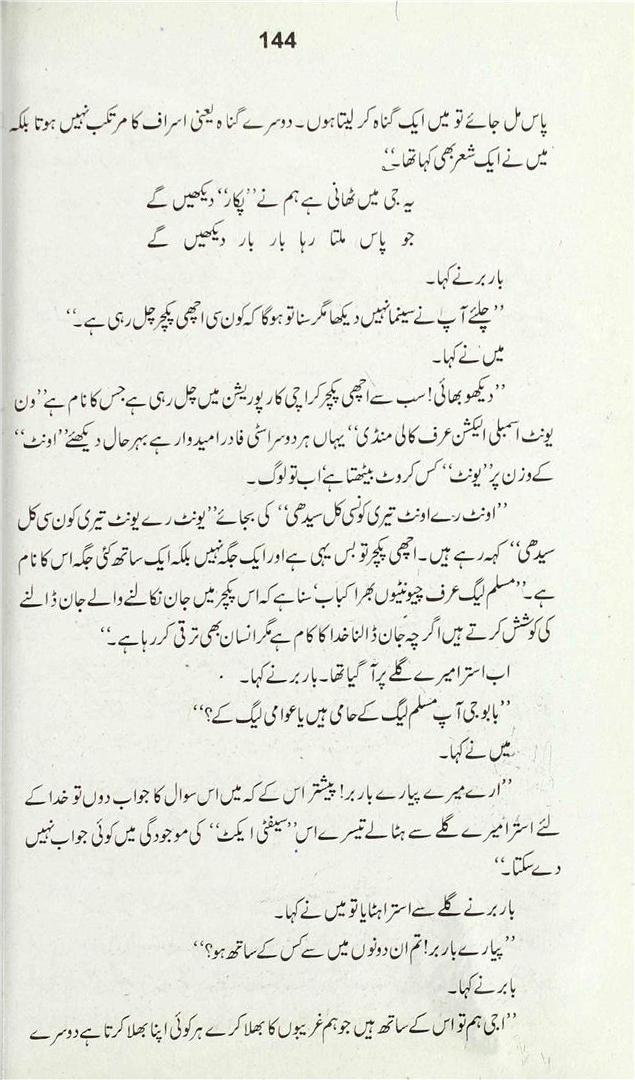 144
پاس مل جائے تو میں ایک گناہ کر لیتا ہوں۔ دوسرے گناہ یعنی اسراف کا مرتکب نہیں ہوتا بلکہ
میں نے ایک شعر بھی کہا تھا۔‘‘
یہ جی میں ٹھانی ہے ہم نے ’’پکار‘‘ دیکھیں گے
جو پاس ملتا رہا بار بار دیکھیں گے
باربر نے کہا۔
’’چلئے آپ نے سینما نہیں دیکھا مگر سنا تو ہوگا کہ کون سی اچھی پکچر چل رہی ہے۔‘‘
میں نے کہا۔
’’دیکھو بھائی! سب سے اچھی پکچر کراچی کارپوریشن میں چل رہی ہے جس کا نام ہے ’’ون
یونٹ اسمبلی الیکشن عرف کالی منڈی‘‘ یہاں ہر دوسرا سٹی فادر امیدوار ہے بہر حال دیکھئے ’’اونٹ‘‘
کے وزن پر ’’یونٹ‘‘ کس کروٹ بیٹھتا ہے اب تو لوگ۔
’’اونٹ رے اونٹ تیری کونسی کل سیدھی‘‘ کی بجائے ’’یونٹ رے یونٹ تیری کون سی کل
سیدھی‘‘ کہہ رہے ہیں۔ اچھی پکچر تو بس یہی ہے اور ایک جگہ نہیں بلکہ ایک ساتھ کئی جگہ اس کا نام
ہے۔ ’’مسلم لیگ عرف چیونٹیوں بھرا کباب‘ سنا ہے کہ اس پکچر میں جان نکالنے والے جان ڈالنے
کی کوشش کرتے ہیں اگر چہ جان ڈالنا خدا کا کام ہے مگر انسان بھی ترقی کر رہا ہے۔‘‘
اب استرا میرے گلے پر آ گیا تھا۔ باربر نے کہا۔
’’بابو جی آپ مسلم لیگ کے حامی ہیں یا عوامی لیگ کے؟‘‘
میں نے کہا۔
’’ارے میرے پیارے باربر! پیشتر اس کے کہ میں اس سوال کا جواب دوں تو خدا کے
لئے استرا میرے گلے سے ہٹا لے تیسرے اس ’’سیفٹی ایکٹ‘‘ کی موجودگی میں کوئی جواب نہیں
دے سکتا۔‘‘
باربر نے گلے سے استرا ہٹایا تو میں نے کہا۔
’’پیارے باربر! تم ان دونوں میں سے کس کے ساتھ ہو؟‘‘
بابر نے کہا۔
’’اجی ہم تو اس کے ساتھ ہیں جو ہم غریبوں کا بھلا کرے ہر کوئی اپنا بھلا کرتا ہے دوسرے